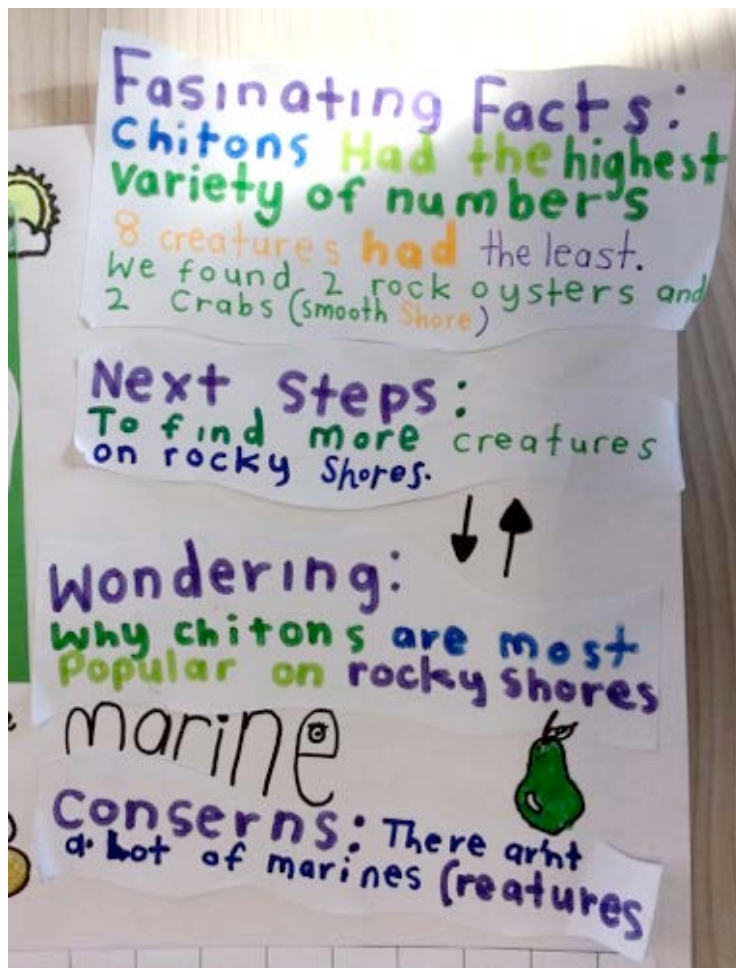 Fasinating Facts:
Chitons Had the highest
Variety of number's
8 creatures had the least.
We found 2 rock oysters and
2 Crabs (Smooth Shore)
Next Steps:
To find more creatures
on rocky Shores.
Wondering:
Why chitons are most
Popular on rocky shores
marine
Conserns: There arn't
a lot of marines Creatures